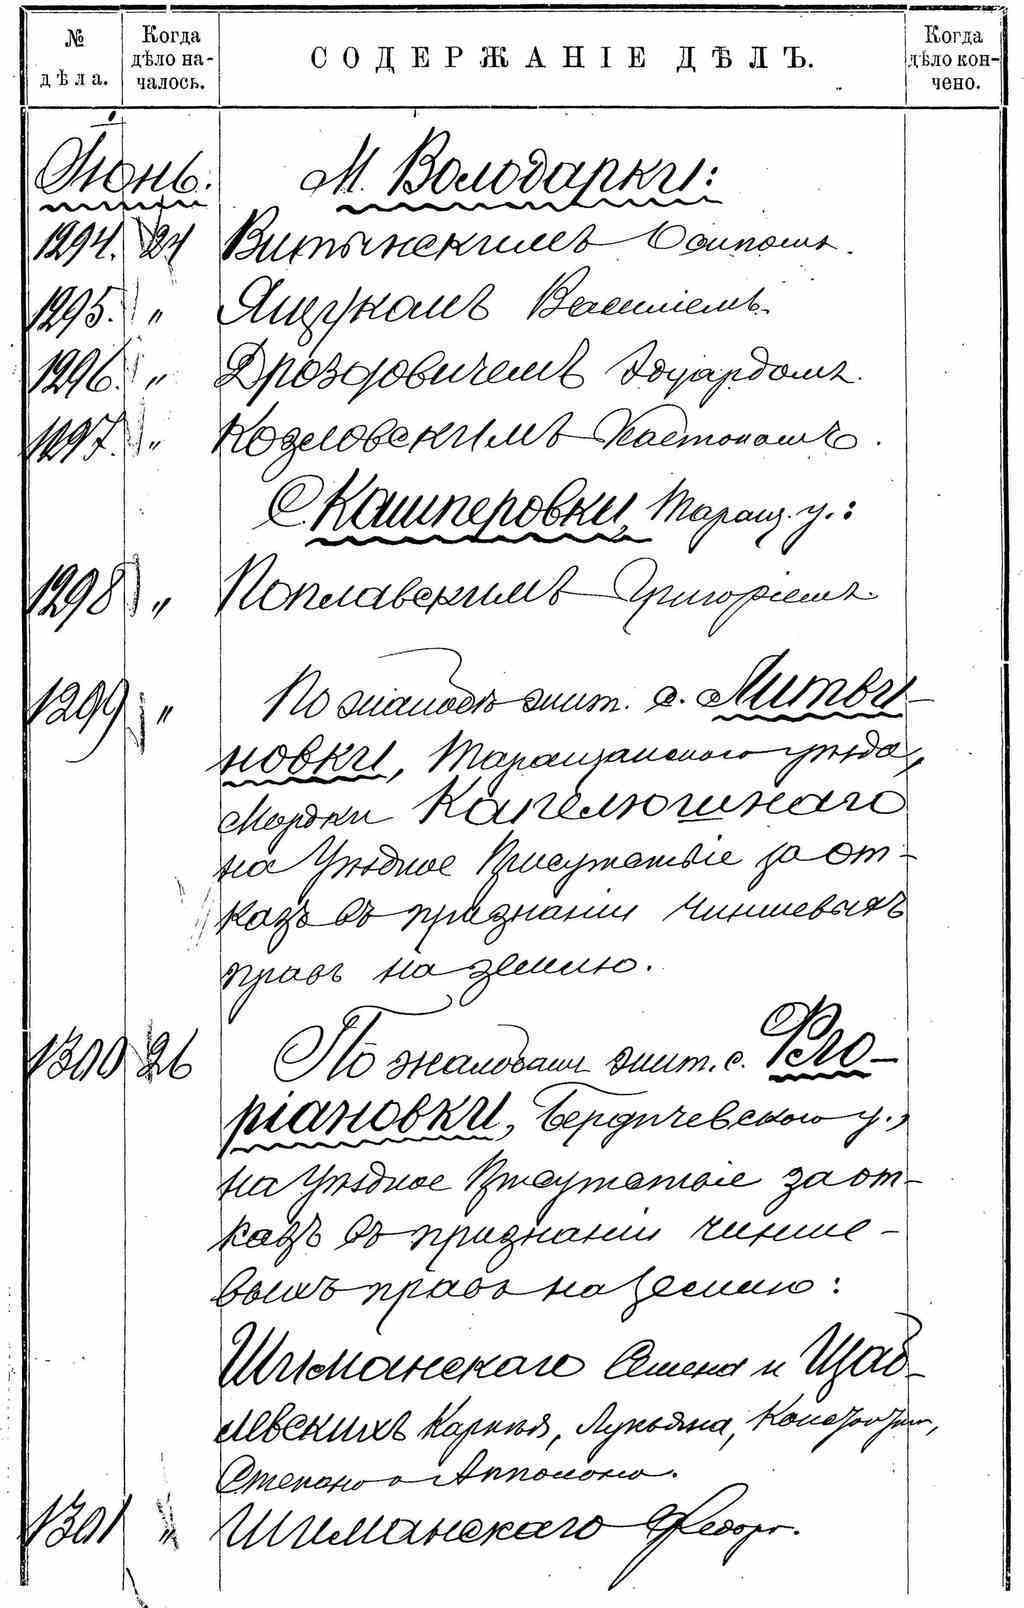 № дѣла. Когда дѣло началось. СОДЕРЖАНІЕ ДѢЛЪ. Когда дѣло кончено.
Іюнь. М. Володарки:
1294. 24 Витынскимъ Осипомъ.
1295. " Ящукомъ Василіемъ.
1296. " Дроздовичемъ Эдуардомъ.
1297. " Козловскимъ
С. Кашперовки, Таращ. у.:
1298 " Поплавскимъ Григоріемъ.
1299 " По жалобѣ жит. с. Литви-
новки, Таращанскаго уѣзда,
Мордки Капелюшнаго
на Уѣздное Присутствіе за от-
казъ въ признаніи чиншевыхъ
правъ на землю.
1300 26 По жалобамъ жит. с. Фло-
ріановки, Бердичевскаго у.,
на Уѣздное Присутствіе за от-
казъ въ признаніи чинше-
выхъ правъ на землю:
Шиманскаго Семена и Щаб-
левскихъ Карпа, Лукьяна,
Степана
1301 " Шиманскаго Федора.